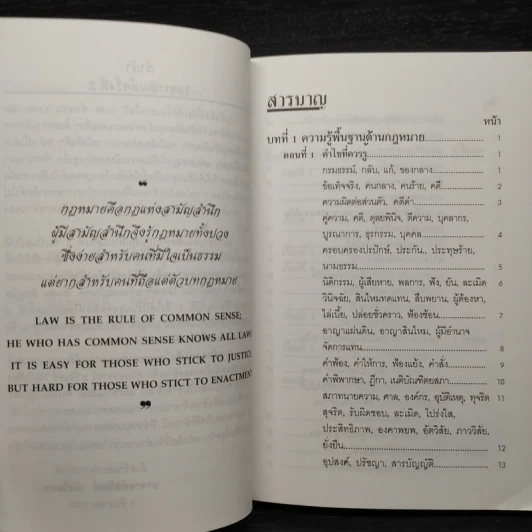 ❝
กฎหมายคือกฎแห่งสามัญสำนึก
ผู้มีสามัญสำนึกจึงรู้กฎหมายทั้งปวง
ซึ่งง่ายสำหรับคนที่มีใจเป็นธรรม
แต่ยากสำหรับคนที่ถือแต่ตัวบทกฎหมาย
LAW IS THE RULE OF COMMON SENSE;
HE WHO HAS COMMON SENSE KNOWS ALL LAW
IT IS EASY FOR THOSE WHO STICK TO JUSTICE
BUT HARD FOR THOSE WHO STICT TO ENACTMENT
❞
สารบาญ
หน้า
บทที่ 1 ความรู้พื้นฐานด้านกฎหมาย 1
ตอนที่ 1 คำไขที่ควรรู้ 1
กรมธรรม์, กลับ, แก้, ของกลาง 1
ข้อเท็จจริง, คนกลาง, คนร้าย, คดี 2
ความผิดต่อส่วนตัว, คดีดำ 3
คู่ความ, คติ, ดุลยพินิจ, ตีความ, บุคลากร
บูรณาการ, ธุรกรรม, บุคคล 4
ครอบครองปรปักษ์, ประกัน, ประทุษร้าย,
นามธรรม 5
นิติกรรม, ผู้เสียหาย, พลการ, ฟัง, ยัน, ละเมิด 6
วินิจฉัย, สินไหมทดแทน, สืบพยาน, ผู้ต้องหา,
ไล่เบี้ย, ปล่อยชั่วคราว, ฟ้องซ้อน 7
อาญาแผ่นดิน, อาญาสินไหม, ผู้มีอำนาจ
จัดการแทน 8
คำฟ้อง, คำให้การ, ฟ้องแย้ง, คำสั่ง 9
คำพิพากษา, ฎีกา, เนติบัณฑิตยสภา 10
สภาทนายความ, ศาล, องค์กร, อุบัติเหตุ, ทุจริต 11
สุจริต, รับผิดชอบ, ละเมิด, โปร่งใส,
ประสิทธิภาพ, องคาพยพ, อัตวิสัย, ภาววิสัย,
ยั่งยืน 12
อุปสงค์, ปรัชญา, สารบัญญัติ 13